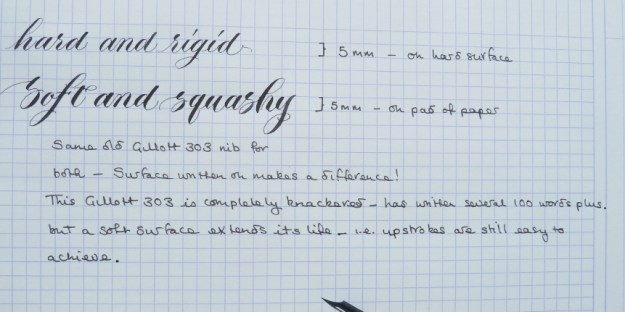 hard and rigid } 5mm – on hard surface
Soft and squashy } 5mm – on pad of paper
Same old Gillott 303 nib for
both – Surface written on makes a difference!
This Gillott 303 is completely knackered – has written several 100 words plus.
but a soft surface extends its life – i.e. upstrokes are still easy to
achieve.